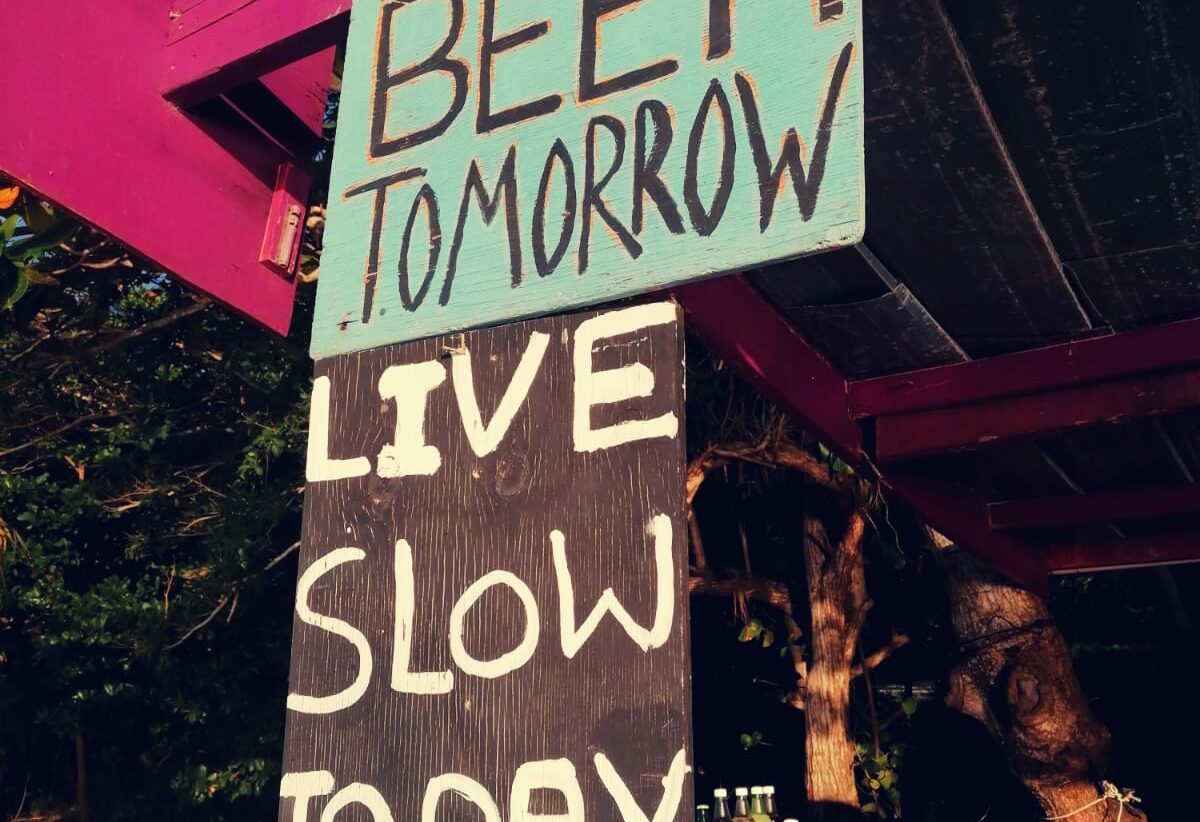 BEER
TOMORROW
LIVE
SLOW
TODAY